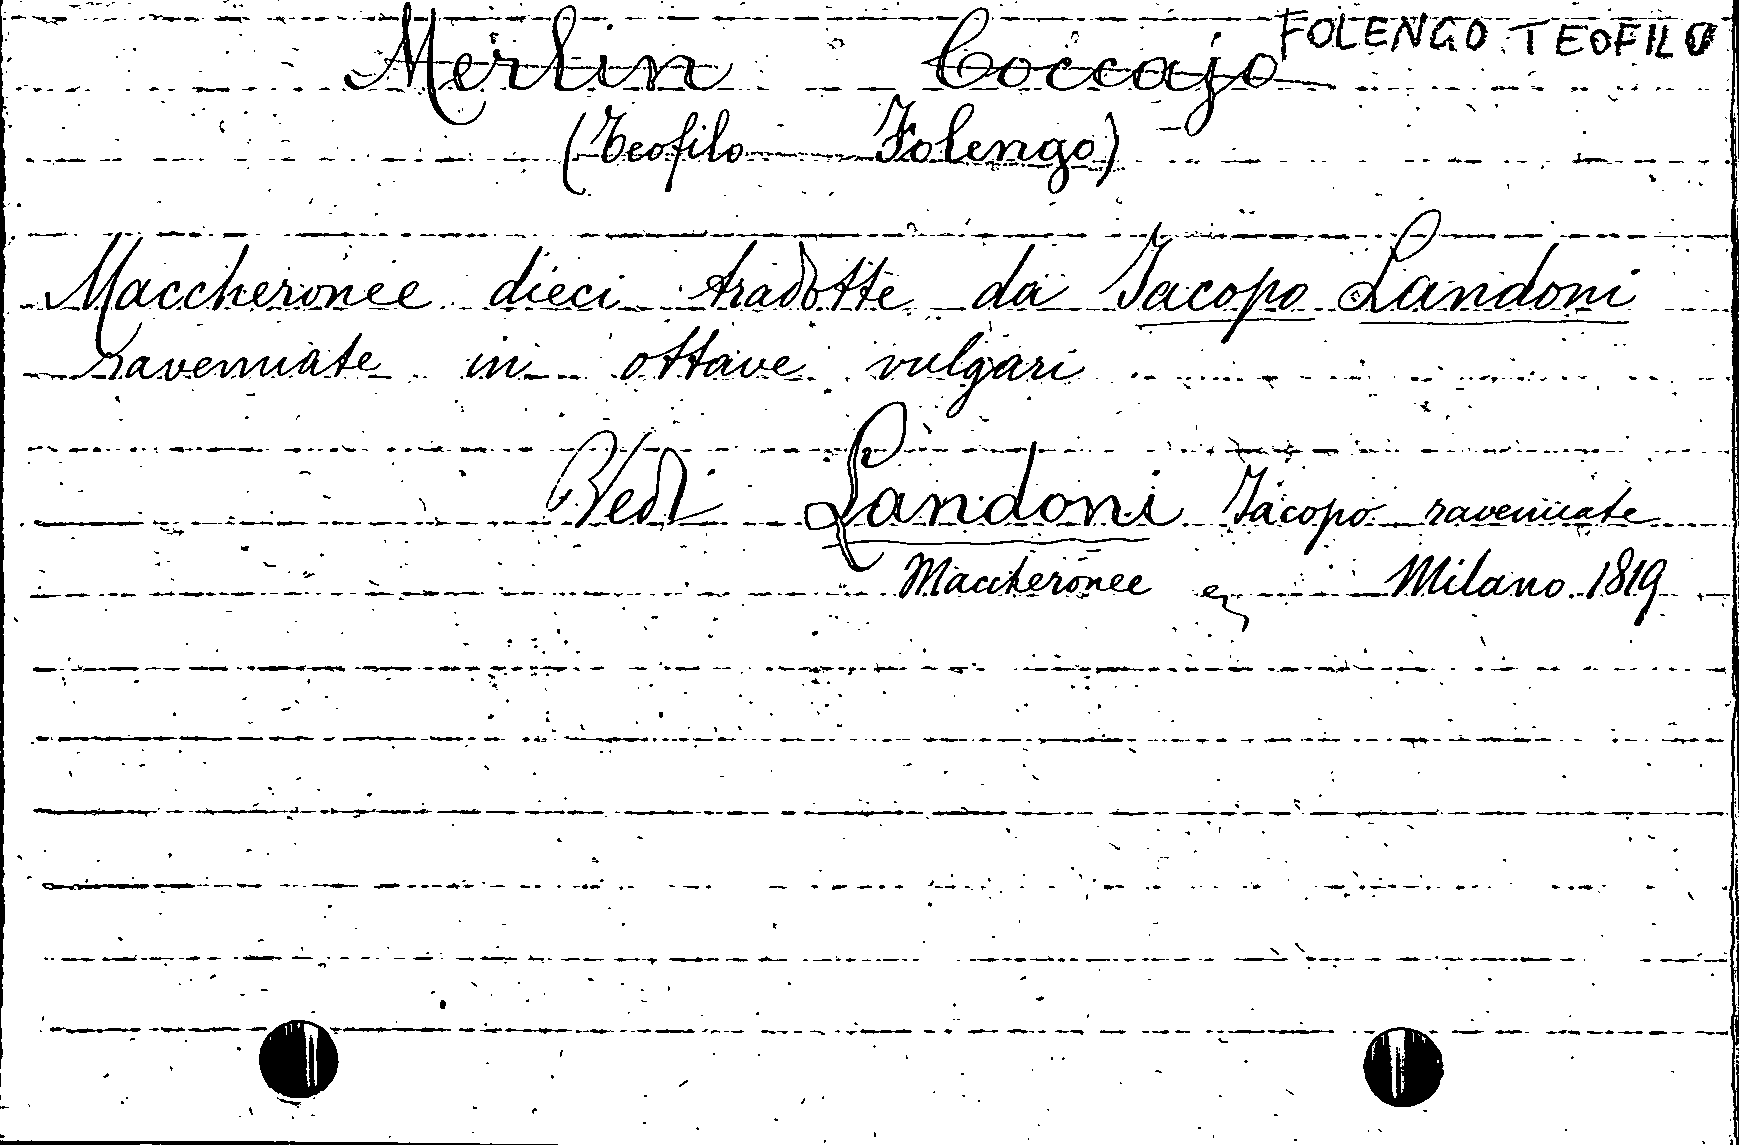 FOLENGO TEOFILO
Merlin Coccajo
(Teofilo Folengo)
Maccheronee dieci tradotte da Jacopo Landoni
ravennate in ottave vulgari
Vedi Landoni Jacopo ravennate
Maccheronee Milano 1819